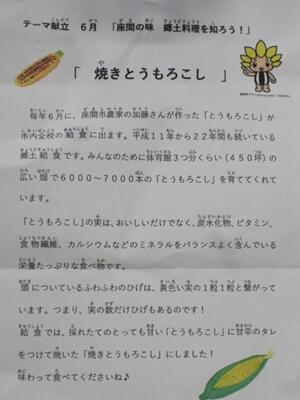 テーマ献立 6月 「座間の味 郷土料理を知ろう!」
「 焼きとうもろこし 」
毎年6月に、座間市農家の加藤さんが作った「とうもろこし」が
市内全校の給食に出ます。平成11年から22年間も続いている
郷土給食です。みんなのために体育館3つ分くらい(450坪)の
広い畑で6000~7000本の「とうもろこし」を育ててくれて
います。
「とうもろこし」の実は、おいしいだけでなく、炭水化物、ビタミン、
食物繊維、カルシウムなどのミネラルをバランスよく含んでいる
栄養たっぷりな食べ物です。
頭についているふわふわのひげは、黄色い実の1粒1粒と繋がって
います。つまり、実の数だけひげもあるのです!
給食では、採れたてのとっても甘い「とうもろこし」に甘辛のタレ
をつけて焼いた「焼きとうもろこし」にしました!
味わって食べてくださいね♪